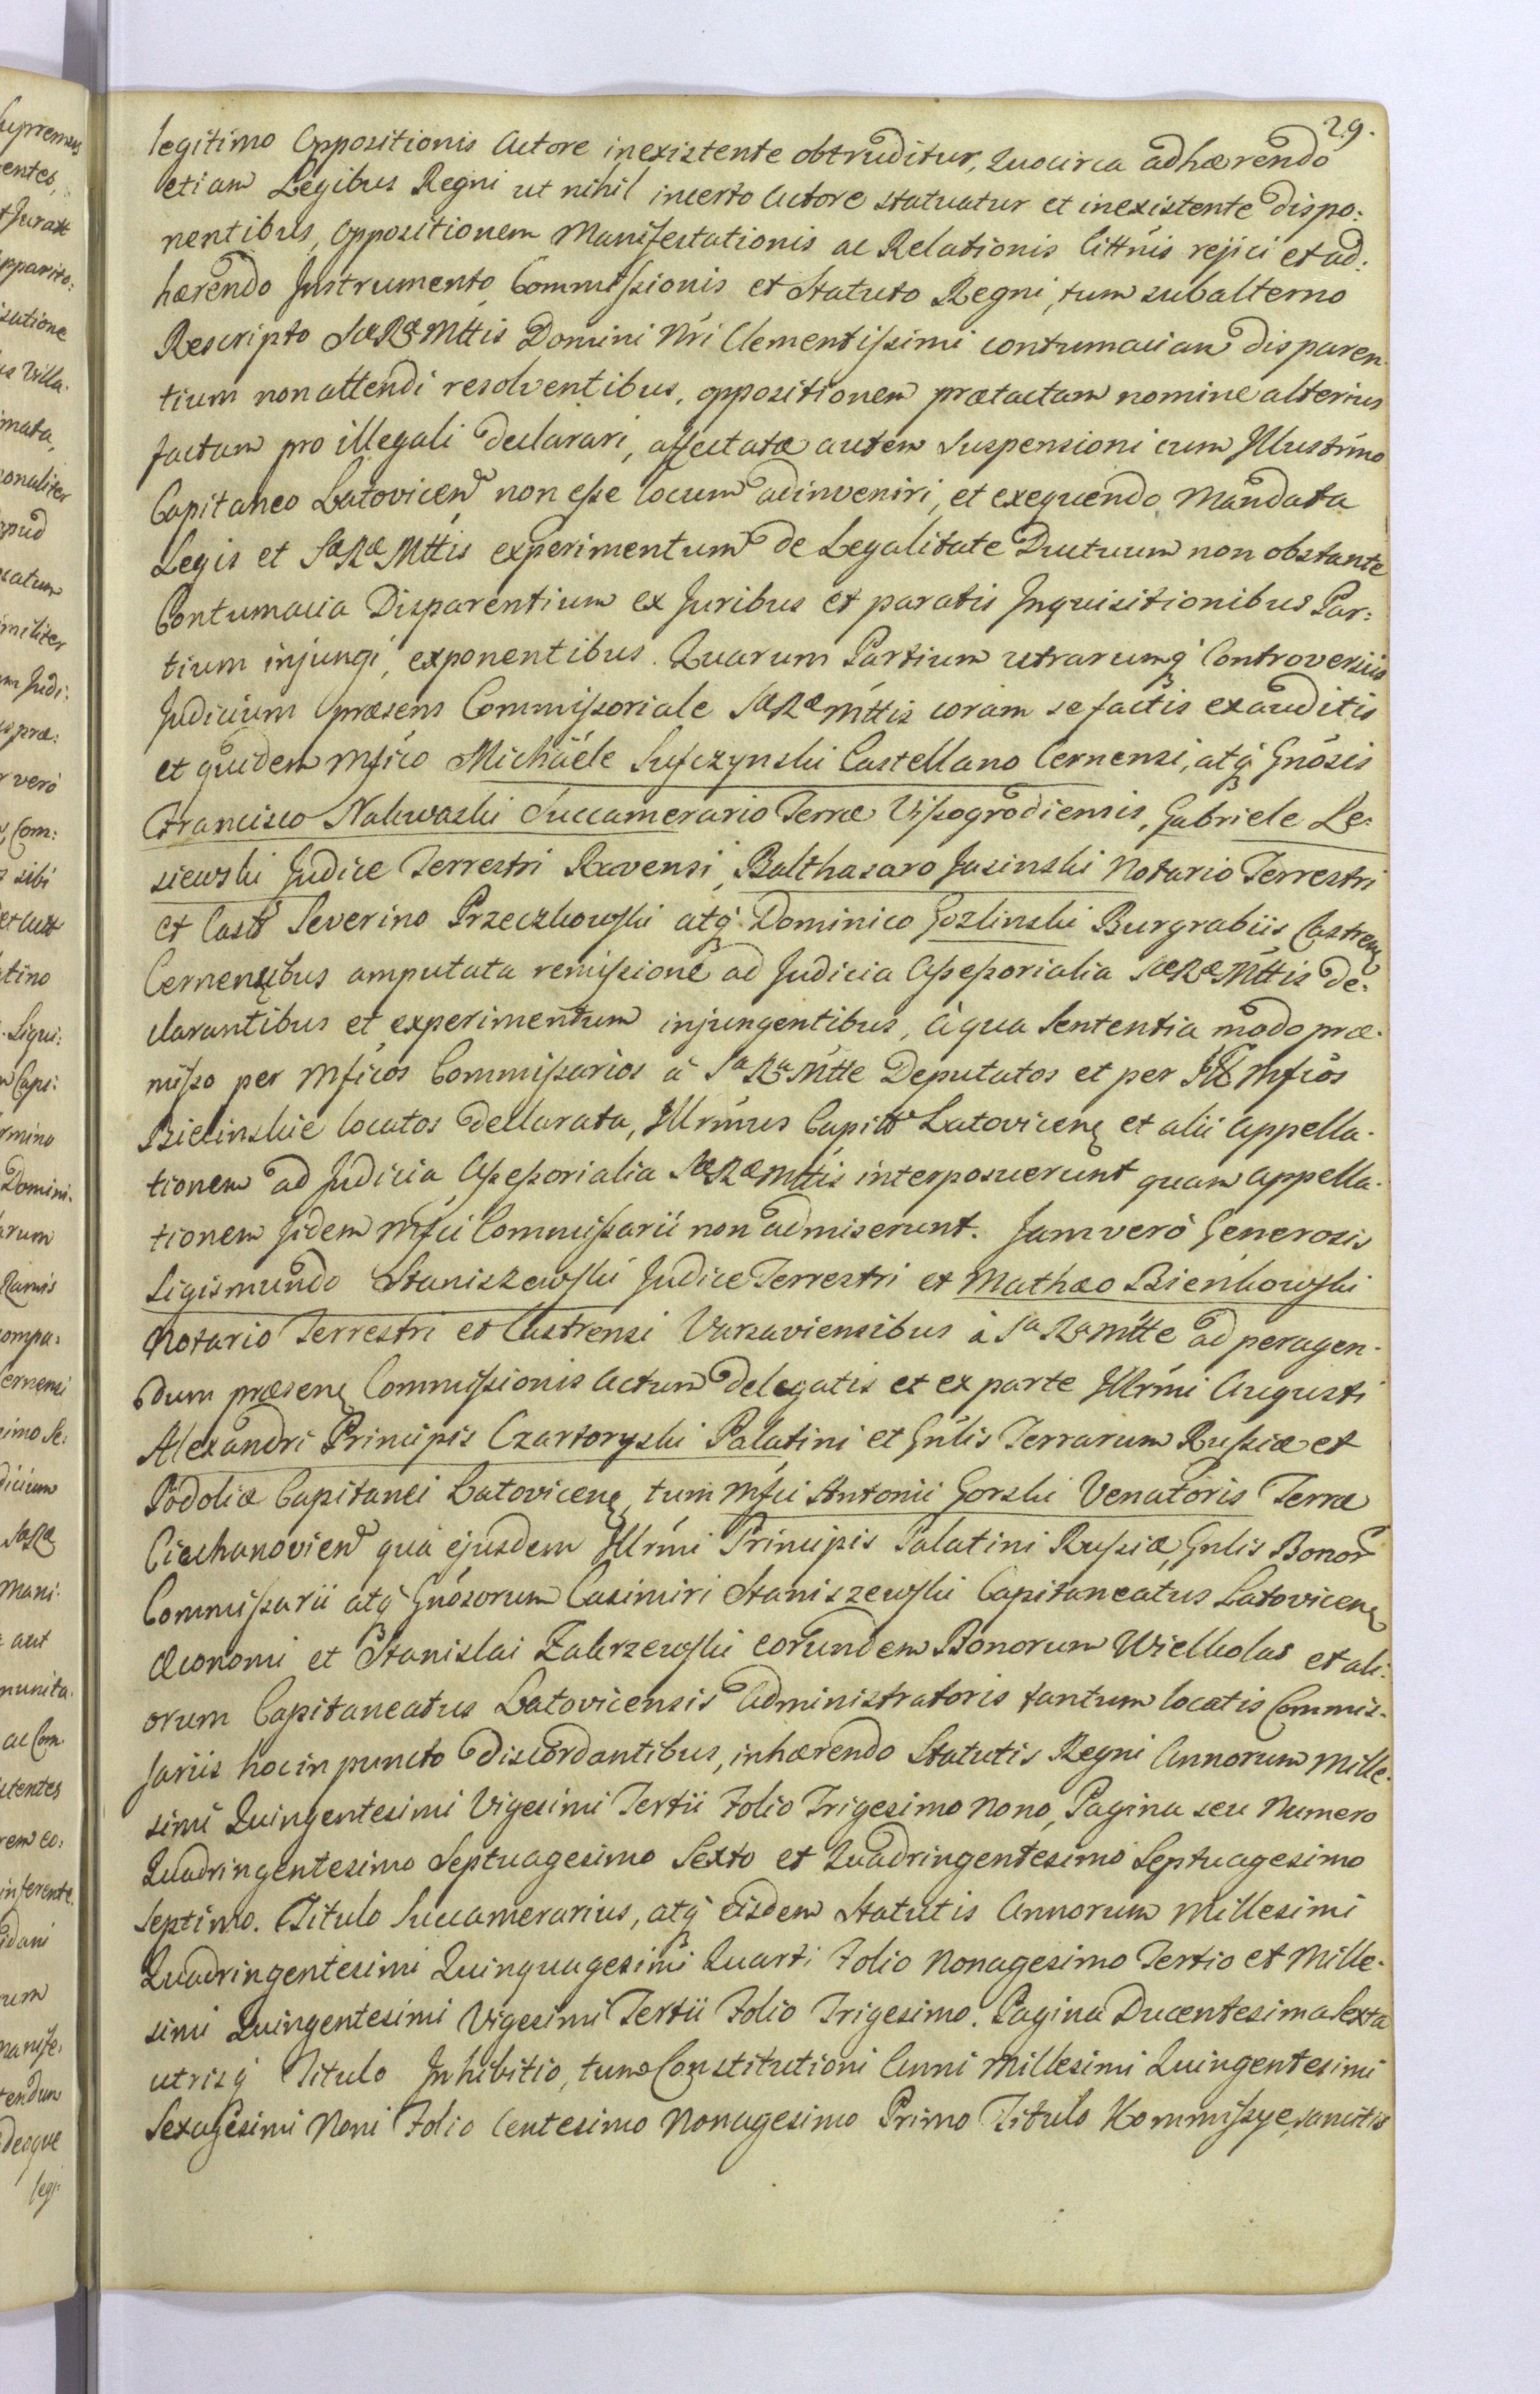 29.
legitimo Oppositionis Actore inexistente obtruditur, Quocirca adhærendo
etiam Legibus Regni ut nihil incerto Actore statuatur et inexistente dispo:
nentibus, Oppositionem Manifestationis ac Relationis Cittñis rejici et ad:
hærendo Instrumento Commissionis et Statuto Regni, tum subalterno
Rescripto SæRæMttis Domini Nri Clementissimi contumaciam disparen
tium non attendi resolventibus, oppositionem prætactam nomine alterius
factam pro illegali declarari, affectatæ autem Suspensioni cum Illustrimo
Capitaneo Latovicen non esse locum adinveniri, et exequendo Mandata
Legis et SæRæ Mttis experimentum de Legalitate Ductuum non obstante
Contumacia Disparentium ex Juribus et paratis Inquisitionibus Par:
tium injungi, exponentibus. Quarum Partium utrarumq Controversiis
Judicium præsens Commissoriale SæRæMttis coram se factis exauditis
et quidem Mfico Michaële Sufczynski Castellano Cernensi, atq Gnosis
Francisco Nakwaski Succamerario Terræ Vissogrodiensis, Gabriele Le:
siewski Judice Terrestri Ravensi, Balthasaro Jasinski Notario Terrestri
et Castr Severino Przeczkowski atq Dominico Gozlinski Burgrabiis Castren
Cernensibus amputata remissione ad Judicia Assessorialia SæRæMttis de:
clarantibus et experimentum injungentibus, à qua Sententia modo præ:
misso per Mficos Commissarios à SaRaMtte Deputatos et per Ill Mficos
Bielinskie locatos declarata, Illrimus Capitt Latovicen et alii Appella:
tionem ad Judicia Assessorialia SæRæMttis interposuerunt quam appella:
tionem Iidem Mfici Commissarii non admiserunt. Jam verò Generosis
Sigismundo Staniszewski Judice Terrestri et Mathæo Bieńkowski
Notario Terrestri et Castrensi Varsaviensibus à SaRaMtte ad peragen:
dum præsen Commissionis Actum delegatis et ex parte Illrmi Augusti
Alexandri Principis Czartoryski Palatini et Gnlis Terrarum Russiæ et
Podoliæ Capitanei Latovicen, tum Mfici Antonii Gorski Venatoris Terræ
Ciechanovien quà ejusdem Illrmi Principis Palatini Russiæ, Gnlis Bonor
Commissarii atq Gnosorum Casimiri Staniszewski Capitaneatus Latovicen
Œconomi et Stanislai Zakrzewski eorundem Bonorum Wielkolas et ali:
orum Capitaneatus Latovicensis Administratoris tantum locatis Commis:
sariis hoc in puncto discordantibus, inhærendo Statutis Regni Annorum Mille:
simi Quingentesimi Vigesimi Tertii Folio Trigesimo Nono, Pagina seu Numero
Quadringentesimo Septuagesimo Sexto et Quadringentesimo Septuagesimo
Septimo. Titulo Succamerarius, atq eisdem Statutis Annorum Millesimi
Quadringentesimi Quinquagesimi Quarti Folio Nonagesimo Tertio et Mille:
simi Quingentesimi Vigesimi Tertii Folio Trigesimo. Pagina Ducentesima Sexta
utrisq Titulo Inhibitio, tum Constitutioni Anni Millesimi Quingentesimi
Sexagesimi Noni Folio Centesimo Nonagesimo Primo Titulo Kommissye, sancitis